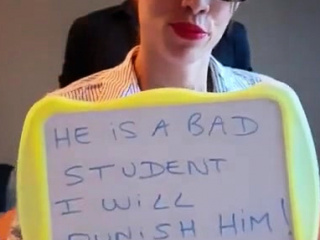 HE IS A BAD
STUDENT
I WILL
PUNISH HIM!